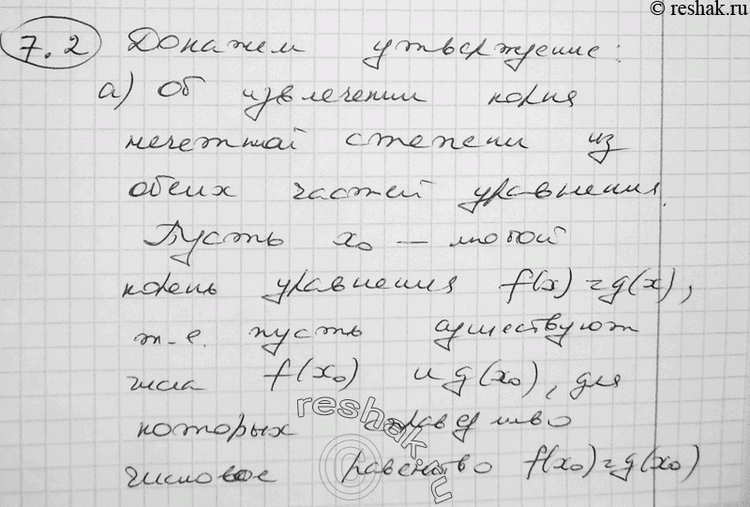 © reshak.ru
7.2 Докажем утверждение:
а) Об извлечении корня
нечетной степени из
обеих частей уравнения.
Пусть x₀ — любой
корень уравнения f(x)=g(x),
т.е. пусть существуют
числа f(x₀) и g(x₀), для
которых справедливо
числовое равенство f(x₀)=g(x₀)
reshak.ru